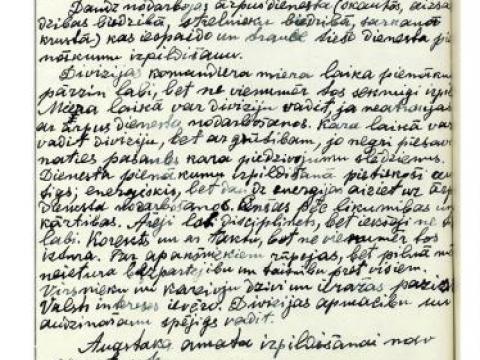 Daudz nodarbojas ārpus dienesta (skautos, aizsa
dzības biedrībā, strēlnieku biedrībā, sarkanā
krustā) kas iespaido un traucē tiešo dienesta pie
nākumu izpildīšanu.
Divizijas komandiera miera laika pienāku
pārzin labi, bet ne vienumēr tos sekmīgi izpil
Miera laikā var diviziju vadīt, ja neatraujas
ar ārpus dienesta nodarbošanos. Kara laikā var
vadīt diviziju, bet ar grūtībām, jo negri piesavi
naties pasaules kara piedzīvojumu slēdzienus.
Dienesta pienākumu izpildīšanā pietiekoši
tīgs, enerģiskis, bet daudz enerģijas aiziet uz ārp
dienesta nodarbošanos. Cenšas pēc likumības un
kārtības. Ārēji ļoti disciplinēts, bet iekšēji ne
labi. Korekts un ar taktu, bet ne vienumēr tos
iztura. Par apakšniekiem rūpējas, bet pilnā mē
neietura bezpartejību un taisnību pret visiem.
Virsnieku un kareivju dzīvi un ierašas pazīst
Valsts intereses ievēro. Divizijas apmācību un
audzināšanu spējīgs vadīt.
Augstāka amata izpildīšanai nav